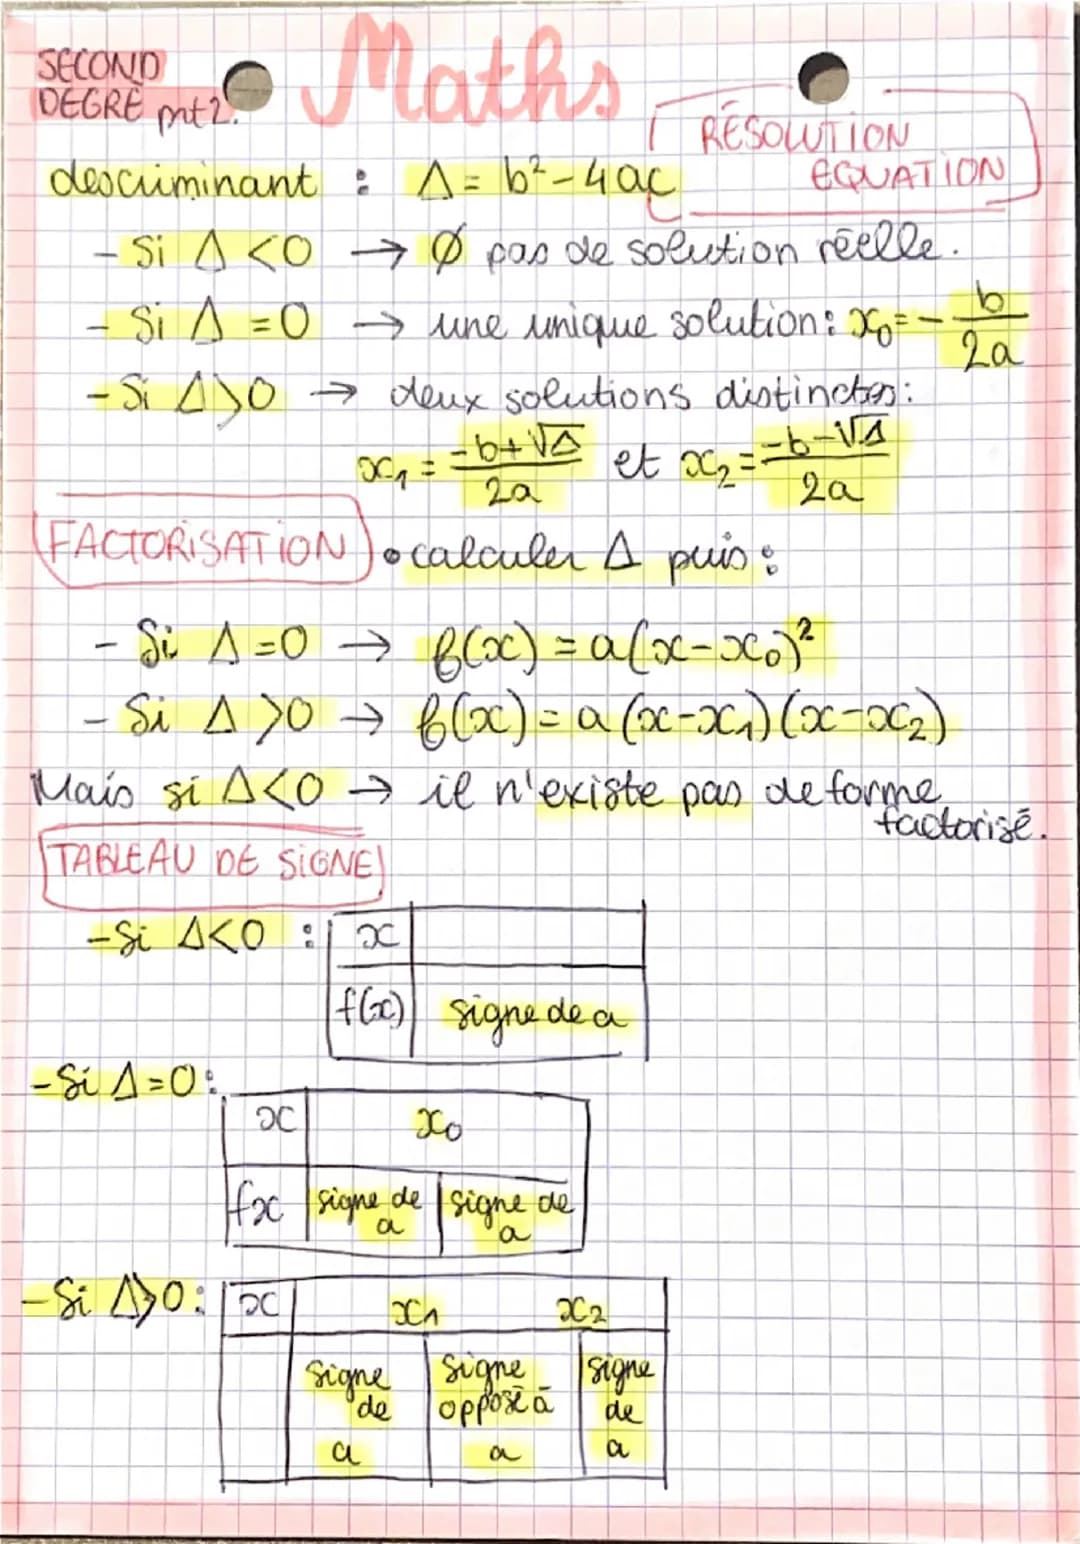 SECOND
DEGRÉ pnt2.
Maths
RÉSOLUTION
EQUATION
descriminant : Δ = b² - 4ac
- Si Δ < 0 → Ø pas de solution réelle.
- Si Δ = 0 → une unique solution : x₀ = - b/2a
- Si Δ > 0 → deux solutions distinctes :
x₁ = -b+√Δ/2a et x₂ = -b-√Δ/2a
FACTORISATION • calculer Δ puis :
- Si Δ = 0 → f(x) = a(x-x₀)²
- Si Δ > 0 → f(x) = a(x-x₁)(x-x₂)
Mais si Δ < 0 → il n'existe pas de forme
factorisé.
TABLEAU DE SIGNE
- Si Δ < 0 : x
f(x) signe de a
- Si Δ = 0 :
x x₀
fx signe de a signe de a
- Si Δ > 0 : x x₁ x₂
signe de a signe opposé à a signe de a